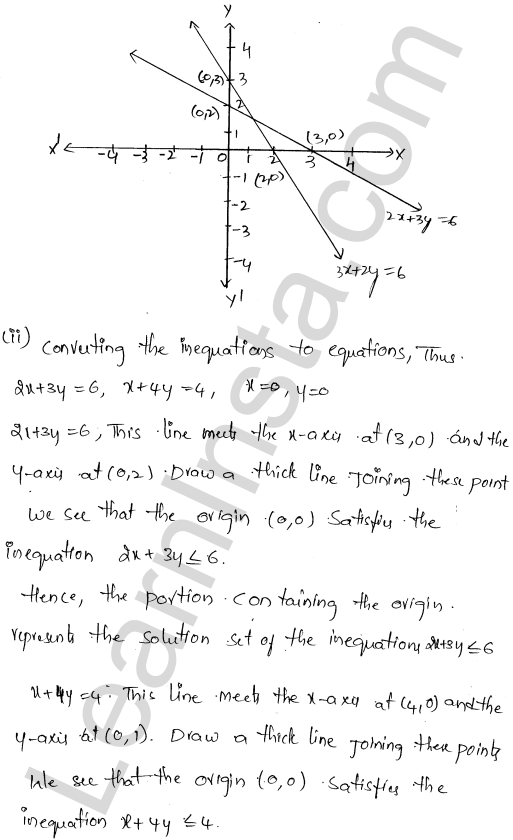 Y
4
(0,3) 3
(0,2) 2
1
(3,0)
X' -4 -3 -2 -1 0 1 2 3 4 X
-1 (2,0)
-2
2x+3y=6
-3
-4
3x+2y=6
Y'
(ii) Converting the inequations to equations, Thus.
2x+3y=6, x+4y=4, x=0, y=0
2x+3y=6, This line meets the x-axis at (3,0) and the
y-axis at (0,2). Draw a thick line joining these point
We see that the origin (0,0) Satisfies the
inequation 2x+3y≤6.
Hence, the portion containing the origin.
represents the solution set of the inequations 2x+3y≤6
x+4y=4. This line meets the x-axis at (4,0) and the
y-axis at (0,1). Draw a thick line joining these points
We see that the origin (0,0) satisfies the
inequation x+4y≤4.
LearnInsta.com